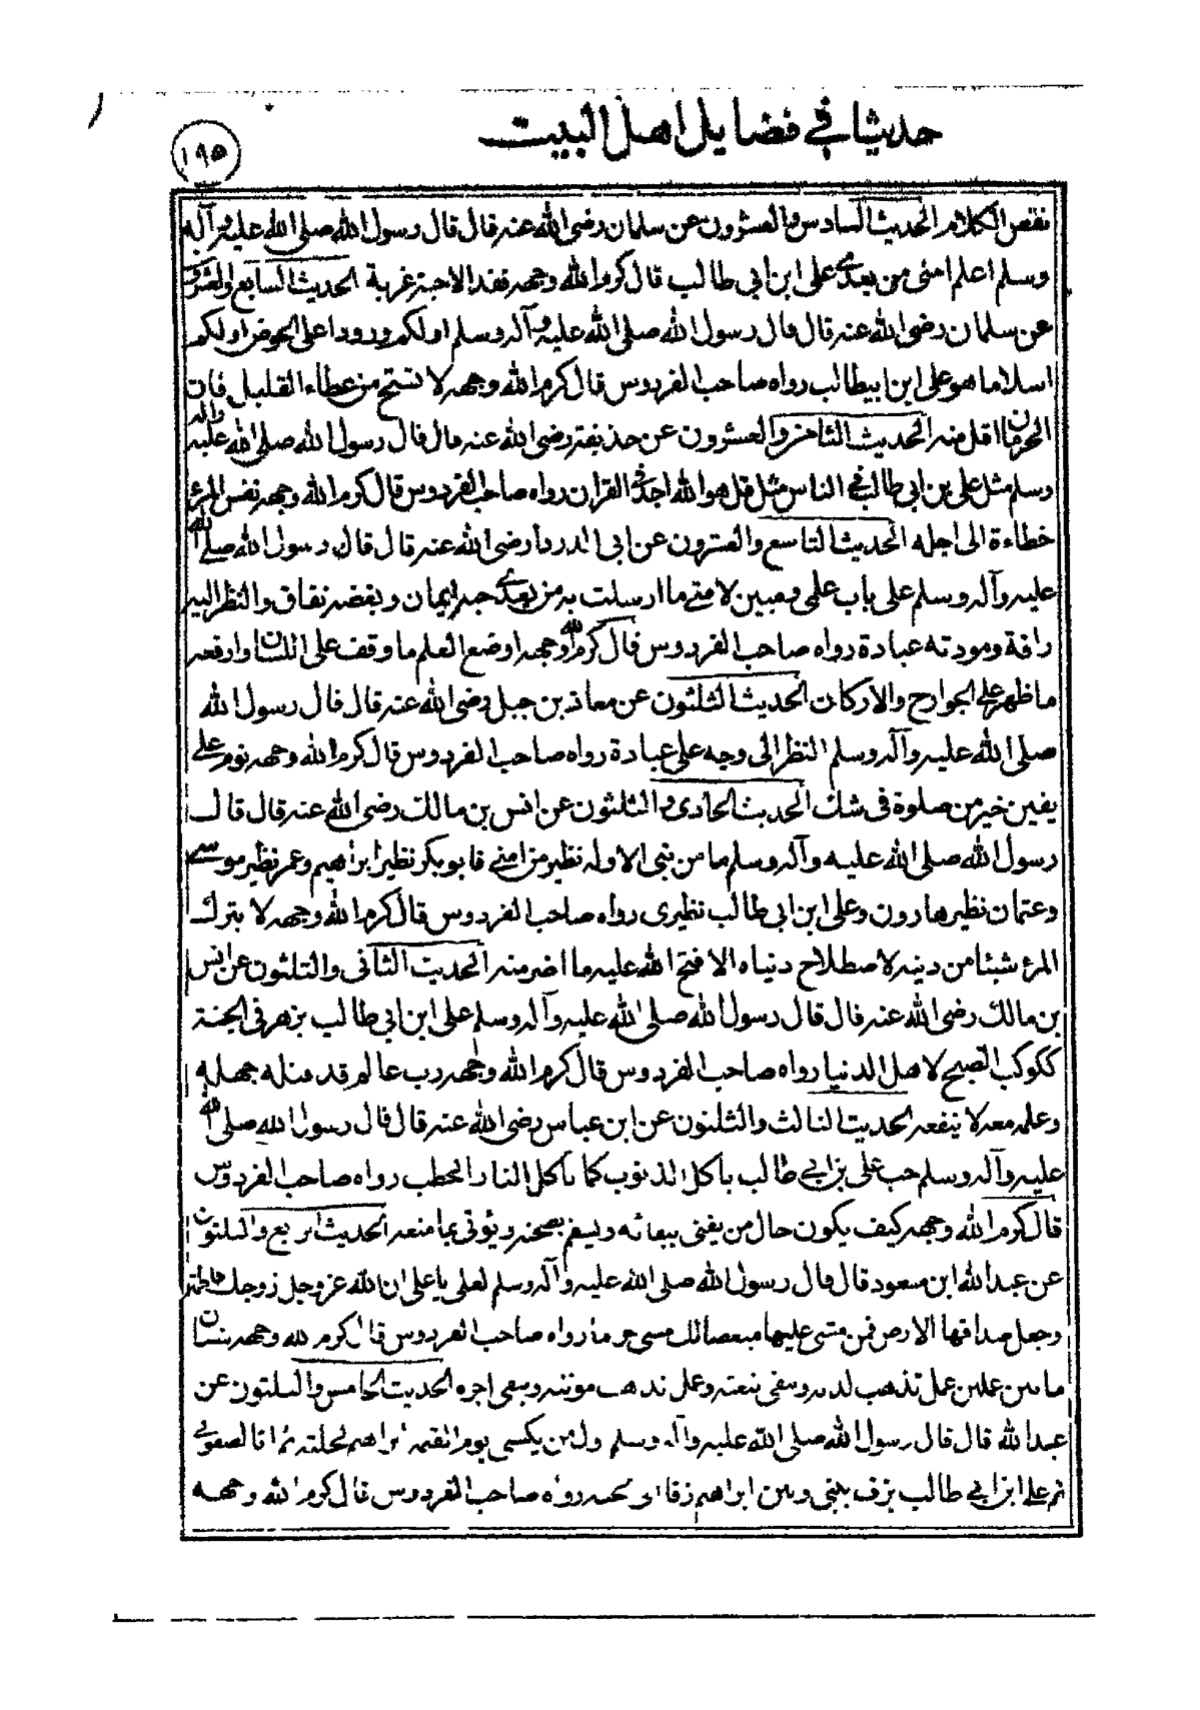 حديثا في فضايل اهل البيت
١٩٥
نقص الكلام الحديث السادس والعشرون عن سلمان رضي الله عنه قال قال رسول الله صلى الله عليه وآله
وسلم اعلم امتي من بعدي على ابن ابي طالب قال كرم الله وجهه فقد الاحبة غربة الحديث السابع والعشرون
عن سلمان رضي الله عنه قال قال رسول الله صلى الله عليه وآله وسلم اولكم ورودا على الحوض اولكم
اسلاما هو على ابن ابيطالب رواه صاحب الفردوس قال كرم الله وجهه لا تستح من عطاء القليل فان
الحرمان اقل منه الحديث الثامن والعشرون عن حذيفة رضي الله عنه قال قال رسول الله صلى الله عليه وآله
وسلم مثل على بن ابي طالب في الناس مثل قل هو الله احد في القران رواه صاحب الفردوس قال كرم الله وجهه نفس المرء
خطاءة الى اجله الحديث التاسع والعشرون عن ابي الدرداء رضي الله عنه قال قال رسول الله صلى الله
عليه وآله وسلم على باب علمي ومبين لامتي ما ارسلت به من بعدي حبه ايمان وبغضه نفاق والنظر اليه
رافة ومودته عبادة رواه صاحب الفردوس قال كرم الله وجهه اوضع العلم ما وقف على اللسان وارفعه
ما ظهر على الجوارح والاركان الحديث الثلثون عن معاذ بن جبل رضي الله عنه قال قال رسول الله
صلى الله عليه وآله وسلم النظر الى وجه على عبادة رواه صاحب الفردوس قال كرم الله وجهه نوم على
يقين خير من صلوة في شك الحديث الحادي والثلثون عن انس بن مالك رضي الله عنه قال قال
رسول الله صلى الله عليه وآله وسلم ما من نبي الا وله نظير من امتي فابو بكر نظير ابراهيم وعمر نظير موسى
وعثمان نظير هارون وعلى ابن ابي طالب نظيري رواه صاحب الفردوس قال كرم الله وجهه لا يترك
المرء شيئا من دينه لاصطلاح دنياه الا فتح الله عليه ما اضر منه الحديث الثاني والثلثون عن انس
بن مالك رضي الله عنه قال قال رسول الله صلى الله عليه وآله وسلم على ابن ابي طالب يزهر في الجنة
ككوكب الصبح لاهل الدنيا رواه صاحب الفردوس قال كرم الله وجهه رب عالم قد قتله جهله
وعلمه معه لا ينفعه الحديث الثالث والثلثون عن ابن عباس رضي الله عنه قال قال رسول الله صلى الله
عليه وآله وسلم حب على بن ابي طالب ياكل الذنوب كما ياكل النار الحطب رواه صاحب الفردوس
قال كرم الله وجهه كيف يكون حال من يفنى ببقائه ويسقم بصحته ويؤتى بما منعه الحديث الرابع والثلثون
عن عبد الله ابن مسعود قال قال رسول الله صلى الله عليه وآله وسلم لعلي يا علي ان الله عز وجل زوجك فاطمة
وجعل صداقها الارض فمن مشى عليها مبغضا لك مشى حراما رواه صاحب الفردوس قال كرم الله وجهه شتان
ما بين عملين عمل تذهب لذته وتبقى تبعته وعمل تذهب مؤنته ويبقى اجره الحديث الخامس والثلثون عن
عبد الله قال قال رسول الله صلى الله عليه وآله وسلم اول من يكسى يوم القيمة ابراهيم لخلته ثم انا لصفوتي
ثم على ابن ابي طالب يزف بيني وبين ابراهيم زفا الى الجنة رواه صاحب الفردوس قال كرم الله وجهه